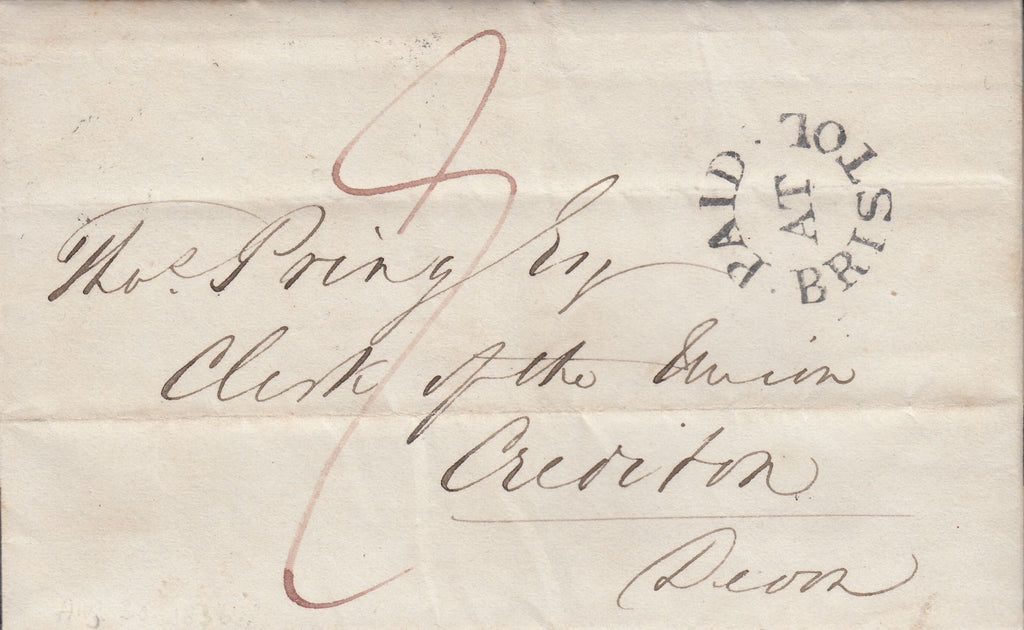 PAID AT BRISTOL
Thos. Pring Esq
Clerk of the Union
Crediton
Devon